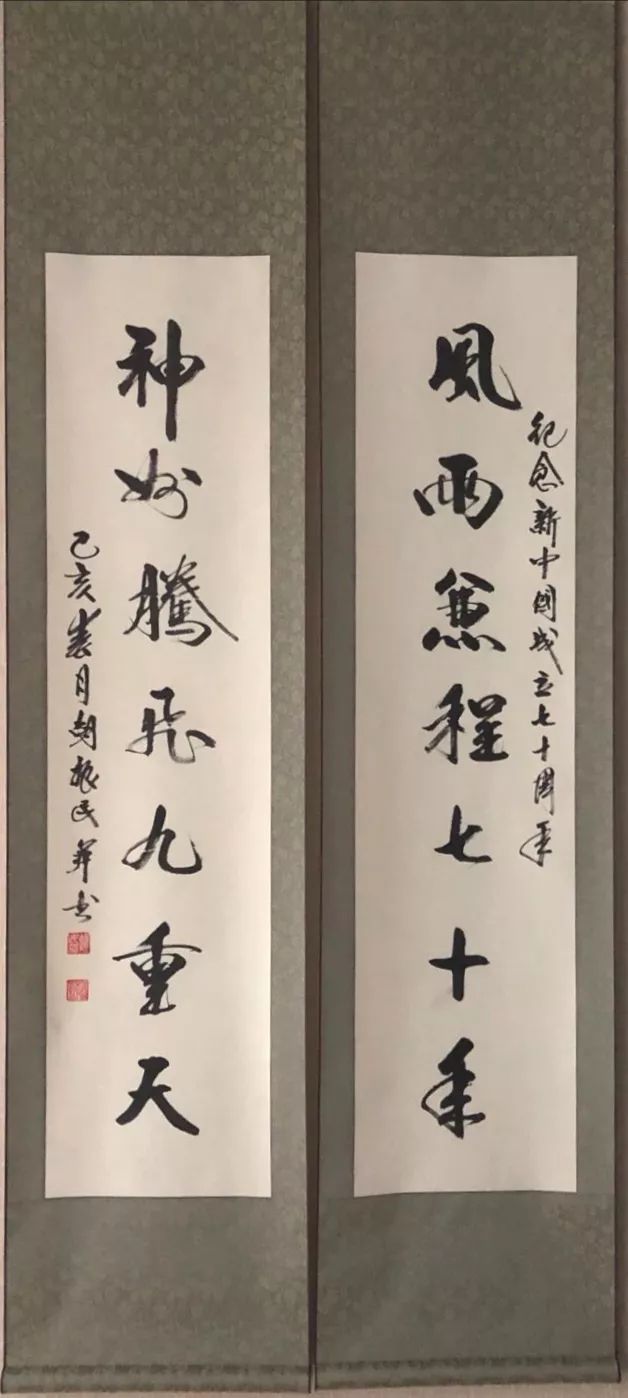 紀念新中國成立七十周年
風雨兼程七十年
神州騰飛九重天
己亥春月胡振民并书